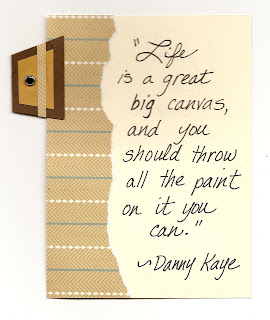 "Life
is a great
big canvas,
and you
should throw
all the paint
on it you
can."
~Danny Kaye